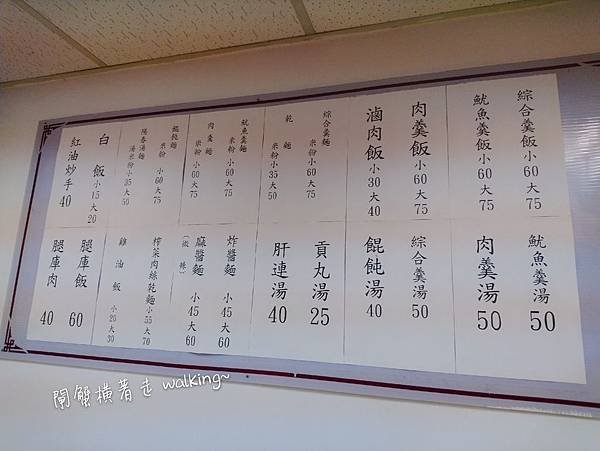 綜合羹飯 小60 大75
魷魚羹飯 小60 大75
肉羹飯 小60 大75
滷肉飯 小30 大40
綜合羹麵 米粉 小60 大75
乾麵 米粉 小35 大50
魷魚羹麵 米粉 小60 大75
肉羹麵 米粉 小60 大75
餛飩麵 米粉 小60 大75
陽春湯麵 湯米粉 小35 大50
白飯 小15 大20
紅油炒手 40
魷魚羹湯 50
肉羹湯 50
綜合羹湯 50
餛飩湯 40
貢丸湯 25
肝連湯 40
炸醬麵 小45 大60
麻醬麵 (微辣) 小45 大60
榨菜肉絲乾麵 小55 大70
雞油飯 小20 大30
腿庫飯 60
腿庫肉 40
閘蟹橫著走 walking~